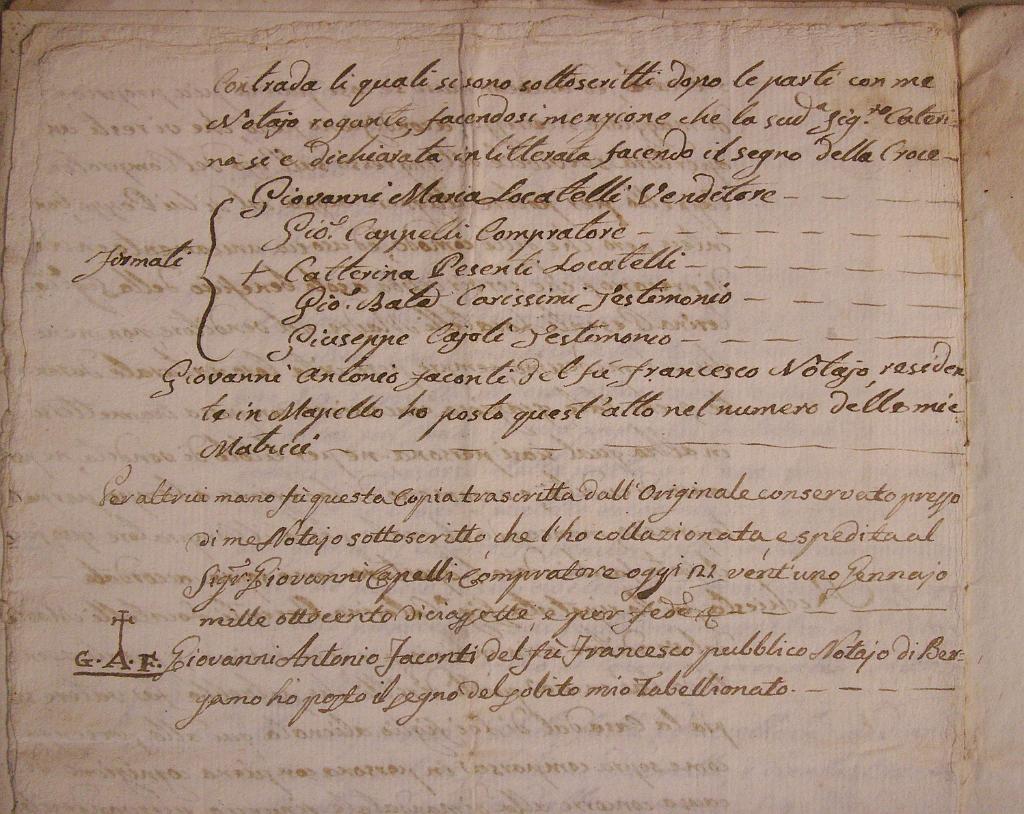 Contrada li quali si sono sottoscritti dopo le parti con me
Notajo rogante, facendosi menzione che la sud.a Sig.ra Cateri-
na si è dichiarata inlitterata facendo il segno della Croce -
Giovanni Maria Locatelli Venditore - - -
Gio. Cappelli Compratore - - - - -
firmati + Catterina Pesenti Locatelli - - - - -
Gio. Bata Carissimi Testimonio - - - -
Giuseppe Cajoli Testimonio - - - - -
Giovanni Antonio Jaconti del fù Francesco Notajo residen
te in Mapello ho posto quest'atto nel numero delle mie
Matrici
Per altrui mano fù questa Copia trascritta dall'Originale conservato presso
di me Notajo sottoscritto che l'ho collazionata e spedita al
Sigr. Giovanni Capelli Compratore oggi 21 vent'uno Gennajo
mille ottocento diciasette, e per fede
G. A. F. Giovanni Antonio Jaconti del fù Francesco pubblico Notajo di Ber-
gamo hò posto il segno del solito mio Tabellionato. - - - -